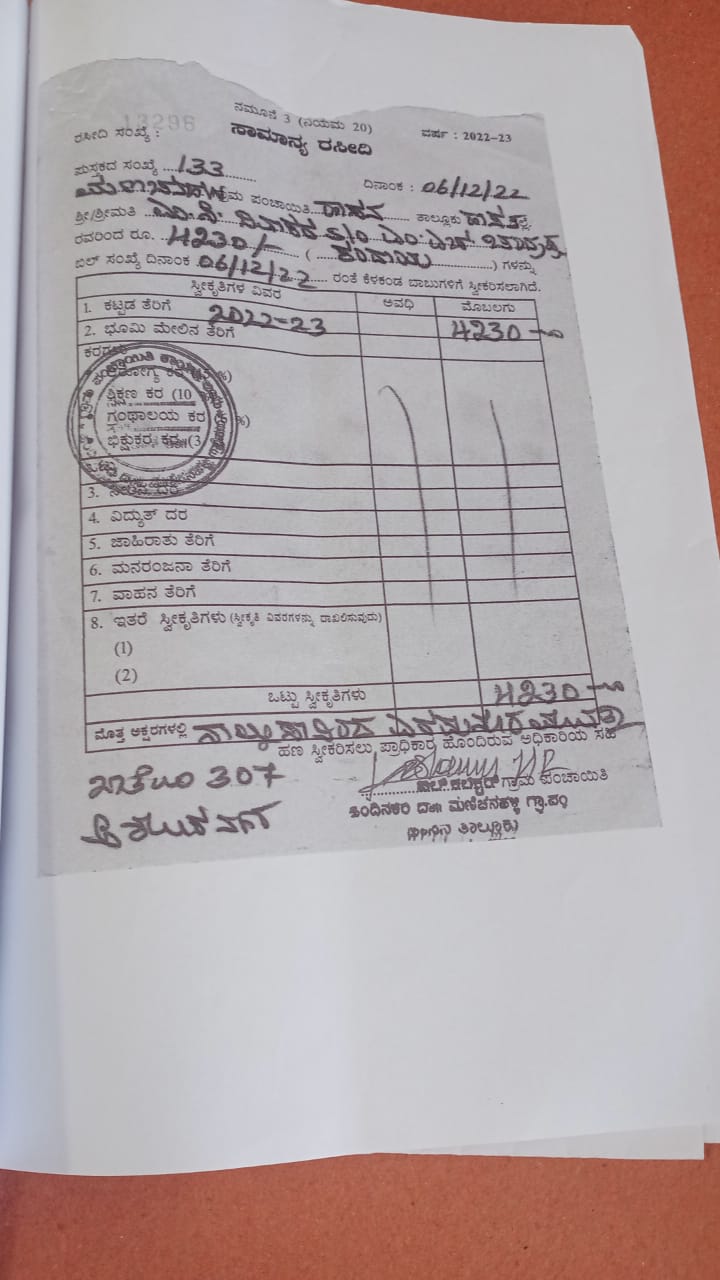 ನಮೂನೆ 3 (ನಿಯಮ 20)
ರಸೀದಿ ಸಂಖ್ಯೆ : 13296 ಸಾಮಾನ್ಯ ರಸೀದಿ ವರ್ಷ : 2022-23
ಪುಸ್ತಕದ ಸಂಖ್ಯೆ 133 ದಿನಾಂಕ : 06/12/22
ಗ್ರಾಮ ಪಂಚಾಯಿತಿ ಹಾಸನ ತಾಲ್ಲೂಕು ಹಾಸನ ಜಿಲ್ಲೆ
ಶ್ರೀ/ಶ್ರೀಮತಿ ಎಂ.ಸಿ. ದಿವಾಕರ S/O ಎಂ ಎಚ್
ರವರಿಂದ ರೂ. 4230/- ( ಕಂದಾಯ ) ಗಳನ್ನು
ಬಿಲ್ ಸಂಖ್ಯೆ ದಿನಾಂಕ 06/12/22 ರಂತೆ ಕೆಳಕಂಡ ಬಾಬುಗಳಿಗೆ ಸ್ವೀಕರಿಸಲಾಗಿದೆ.
ಸ್ವೀಕೃತಿಗಳ ವಿವರ ಅವಧಿ ಮೊಬಲಗು
1. ಕಟ್ಟಡ ತೆರಿಗೆ 2022-23
2. ಭೂಮಿ ಮೇಲಿನ ತೆರಿಗೆ 4230-00
ಕರಗಳು
ಶಿಕ್ಷಣ ಕರ (10
ಗ್ರಂಥಾಲಯ ಕರ %)
ಭಿಕ್ಷುಕರ ಕರ (3
ಒಟ್ಟು
3. ನೀರಿನ ದರ
4. ವಿದ್ಯುತ್ ದರ
5. ಜಾಹಿರಾತು ತೆರಿಗೆ
6. ಮನರಂಜನಾ ತೆರಿಗೆ
7. ವಾಹನ ತೆರಿಗೆ
8. ಇತರೆ ಸ್ವೀಕೃತಿಗಳು (ಸ್ವೀಕೃತಿ ವಿವರಗಳನ್ನು ದಾಖಲಿಸುವುದು)
(1)
(2)
ಒಟ್ಟು ಸ್ವೀಕೃತಿಗಳು 4230-00
ಮೊತ್ತ ಅಕ್ಷರಗಳಲ್ಲಿ ನಾಲ್ಕು ಸಾವಿರದ ಎರಡುನೂರ ಮೂವತ್ತು
ಹಣ ಸ್ವೀಕರಿಸಲು ಪ್ರಾಧಿಕಾರ ಹೊಂದಿರುವ ಅಧಿಕಾರಿಯ ಸಹಿ
ಗ್ರಾಮ ಪಂಚಾಯಿತಿ
307
ಗ್ರಾ.ಪಂ
ಹಾಸನ ತಾಲ್ಲೂಕು